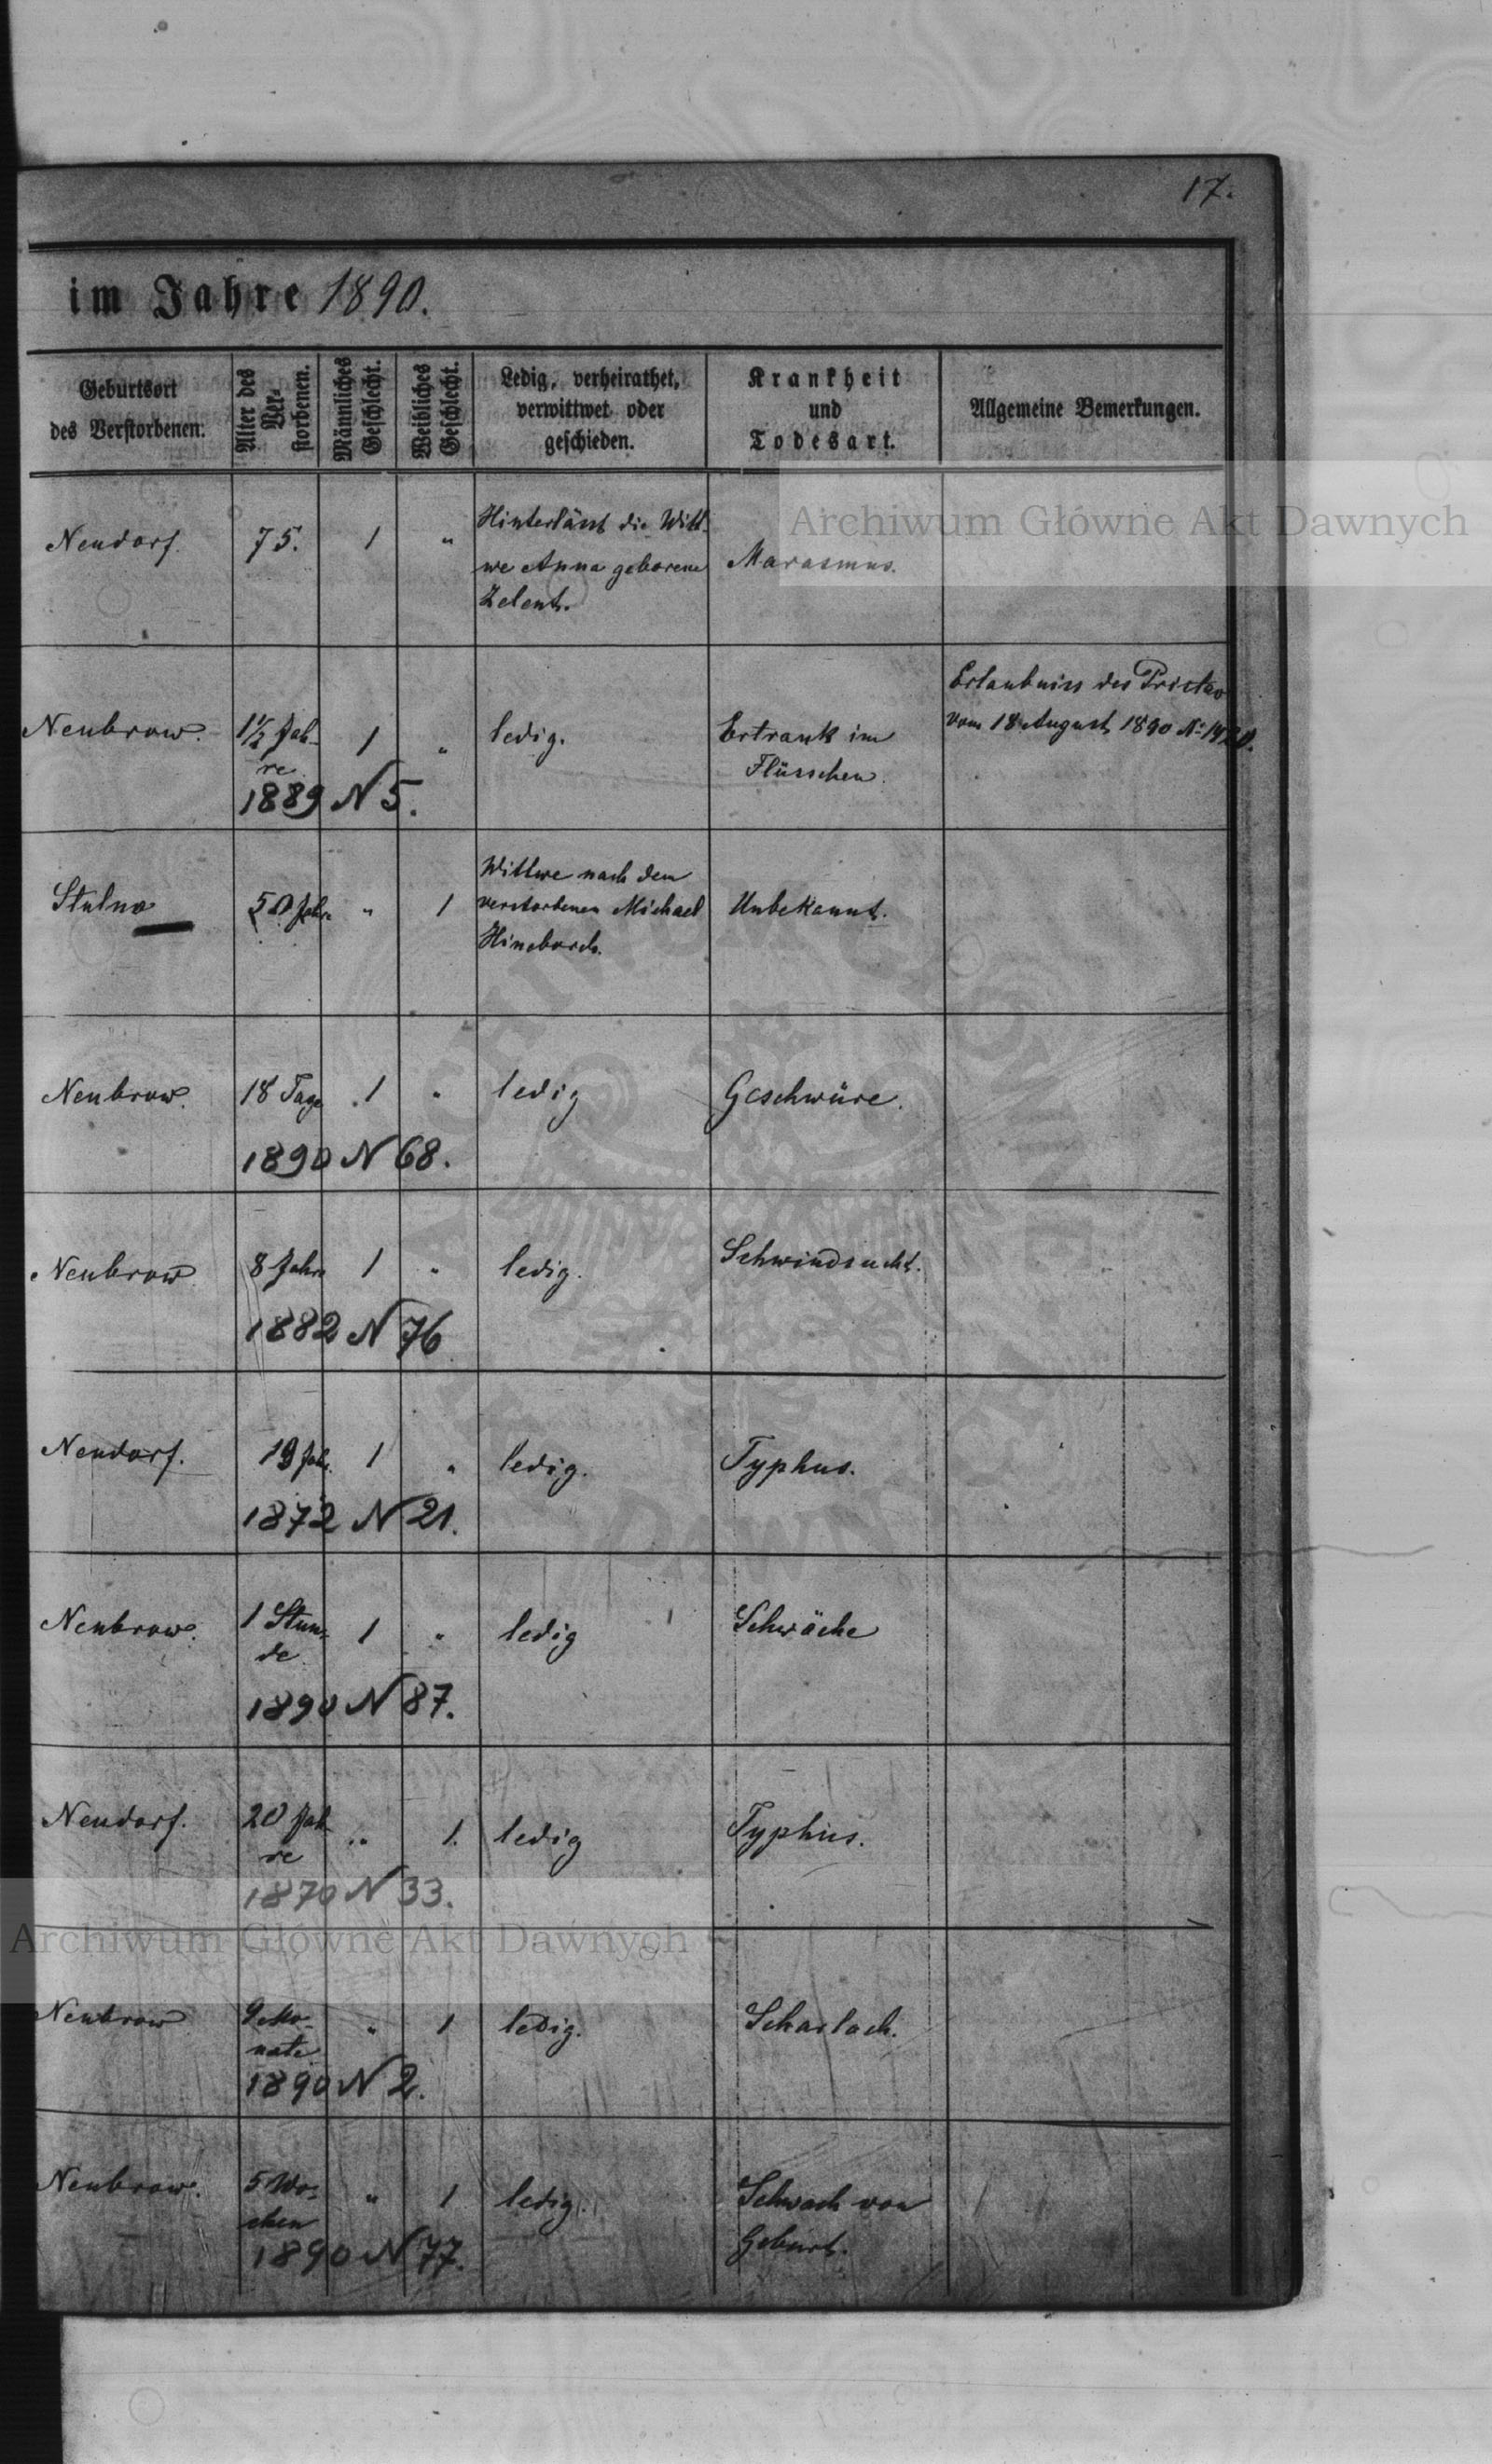 17.
im Jahre 1890.
Geburtsort
des Verstorbenen.
Alter des
Ver-
storbenen.
Männliches
Geschlecht.
Weibliches
Geschlecht.
Ledig, verheirathet,
verwittwet oder
geschieden.
Krankheit
und
Todesart.
Allgemeine Bemerkungen.
Archiwum Główne Akt Dawnych
Neudorf. 75. 1 "
Hinterlässt die Witt-
we Anna geborene
Zelent.
Marasmus.
Neubrow. 1 1/2 Jah-
re
1 " ledig.
Ertrank im
Flüsschen.
Erlaubniss des Pristav
vom 18 August 1890 №
1889 N 5.
Stulno 50 Jahre " 1
Wittwe nach dem
verstorbenen Michael
Unbekannt.
Neubrow. 18 Tage 1 " ledig Geschwüre.
1890 N 68.
Neubrow 8 Jahre 1 " ledig. Schwindsucht.
1882 N 76
Neudorf. 19 Jah. 1 " ledig. Typhus.
1872 N 21.
Neubrow. 1 Stun-
de
1 " ledig Schwäche
1890 N 87.
Neudorf. 20 Jah-
re
" 1. ledig Typhus.
1870 N 33.
Archiwum Główne Akt Dawnych
Neubrow 9 Mo-
nate
" 1 ledig. Scharlach.
1890 N 2.
Neubrow. 5 Wo-
chen
" 1 ledig.
Schwach von
Geburt.
1890 N 77.